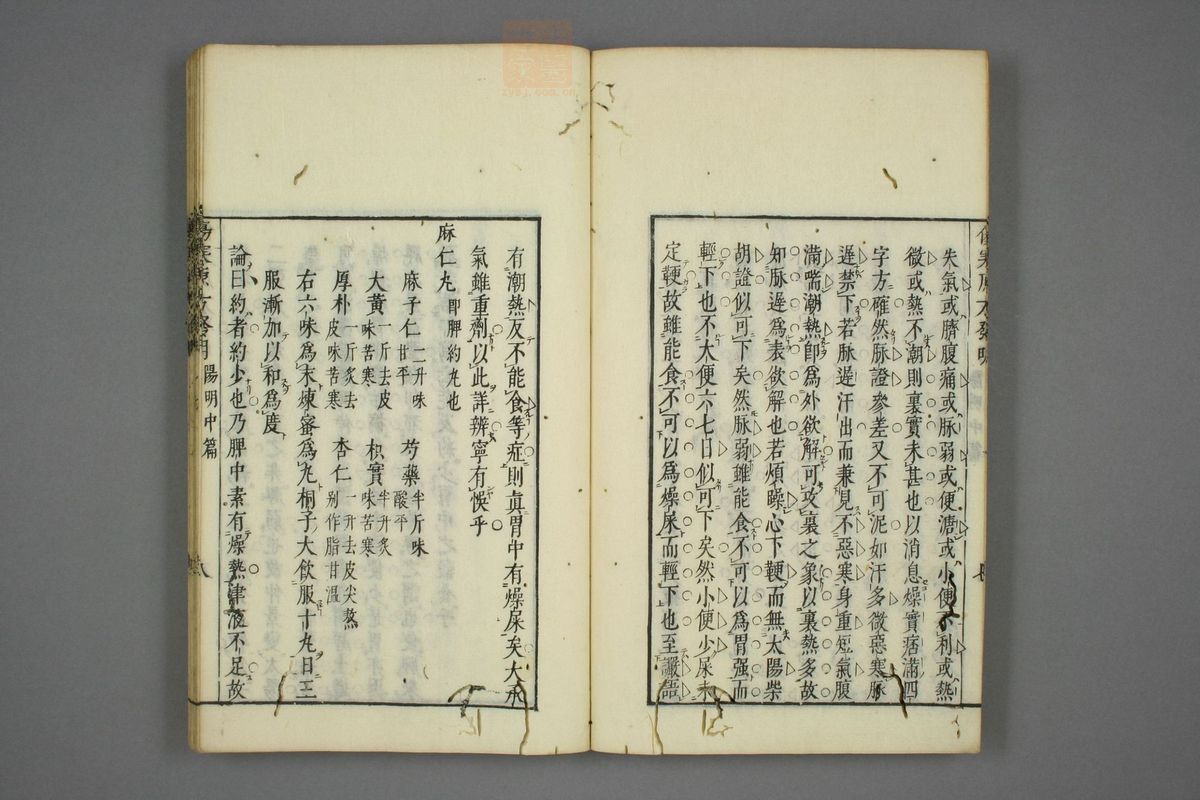 失氣或臍腹痛或脉弱或便溏或小便不利或熱
微或熱不潮則裏實未甚也以消息燥實痞滿四
字方確然脉證參差又不可泥如汗多微惡寒脉
遲禁下若脉遲汗出而兼見不惡寒身重短氣腹
滿喘潮熱卽為外欲解可攻裏之象以裏熱多故
知脉遲為表欲解也若煩躁心下鞕而無太陽柴
胡證似可下矣然脉弱雖能食不可以為胃强而
輕下也不大便六七日似可下矣然小便少屎未
定鞕故雖能食不可以為燥屎而輕下也至讝語
有潮熱反不能食等症則真胃中有燥屎矣大承
氣雖重劑以此詳辨寧有悞乎
麻仁丸 即脾約丸也
麻子仁 二升味甘平 芍藥 半斤味酸平
大黃 一斤去皮味苦寒 枳實 半升炙味苦寒
厚朴 一斤炙去皮味苦寒 杏仁 一升去皮尖熬別作脂甘溫
右六味為末煉蜜為丸桐子大飲服十丸日三
服漸加以和為度
論曰約者約少也乃脾中素有燥熱津液不足故
陽明中篇